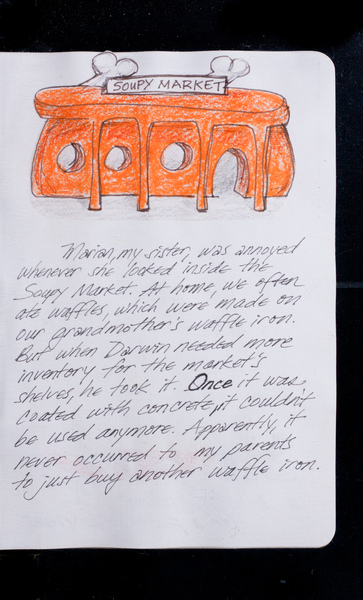 SOUPY MARKET
Marian, my sister, was annoyed
whenever she looked inside the
Soupy Market. At home, we often
ate waffles, which were made on
our grandmother's waffle iron.
But when Darwin needed more
inventory for the market's
shelves, he took it. Once it was
coated with concrete, it couldn't
be used anymore. Apparently, it
never occurred to my parents
to just buy another waffle iron.